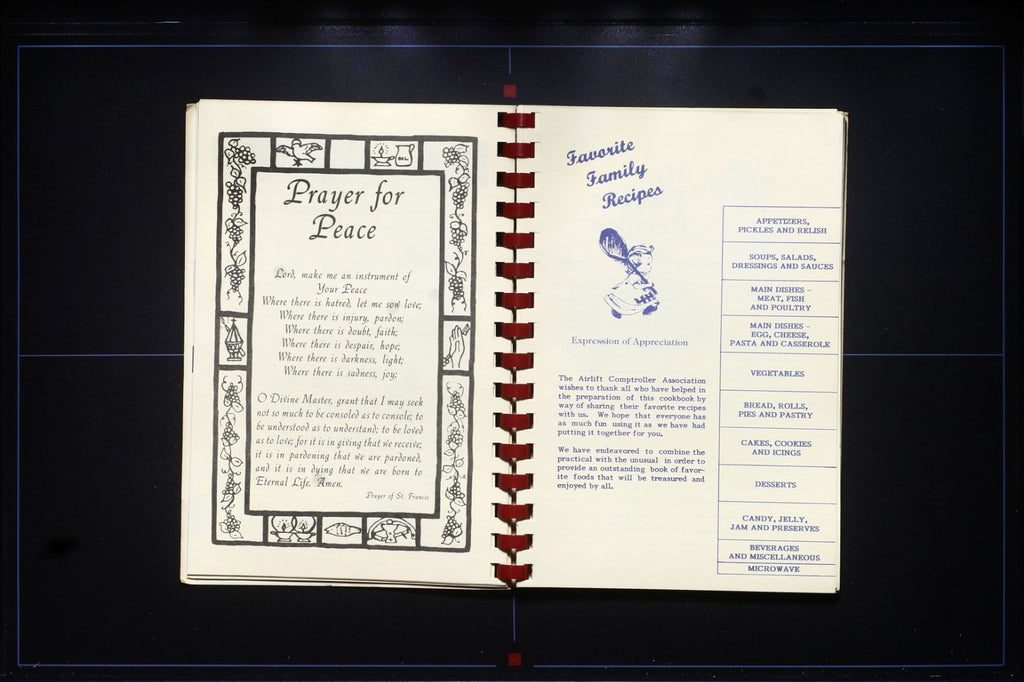 OIL
Prayer for
Peace
Lord, make me an instrument of
Your Peace
Where there is hatred, let me sow love;
Where there is injury, pardon;
Where there is doubt, faith;
Where there is despair, hope;
Where there is darkness, light;
Where there is sadness, joy;
O Divine Master, grant that I may seek
not so much to be consoled as to console; to
be understood as to understand; to be loved
as to love; for it is in giving that we receive;
it is in pardoning that we are pardoned,
and it is in dying that we are born to
Eternal Life. Amen.
Prayer of St. Francis
Favorite
Family
Recipes
Expression of Appreciation
The Airlift Comptroller Association
wishes to thank all who have helped in
the preparation of this cookbook by
way of sharing their favorite recipes
with us. We hope that everyone has
as much fun using it as we have had
putting it together for you.
We have endeavored to combine the
practical with the unusual in order to
provide an outstanding book of favor-
ite foods that will be treasured and
enjoyed by all.
APPETIZERS,
PICKLES AND RELISH
SOUPS, SALADS,
DRESSINGS AND SAUCES
MAIN DISHES –
MEAT, FISH
AND POULTRY
MAIN DISHES –
EGG, CHEESE,
PASTA AND CASSEROLE
VEGETABLES
BREAD, ROLLS,
PIES AND PASTRY
CAKES, COOKIES
AND ICINGS
DESSERTS
CANDY, JELLY,
JAM AND PRESERVES
BEVERAGES
AND MISCELLANEOUS
MICROWAVE